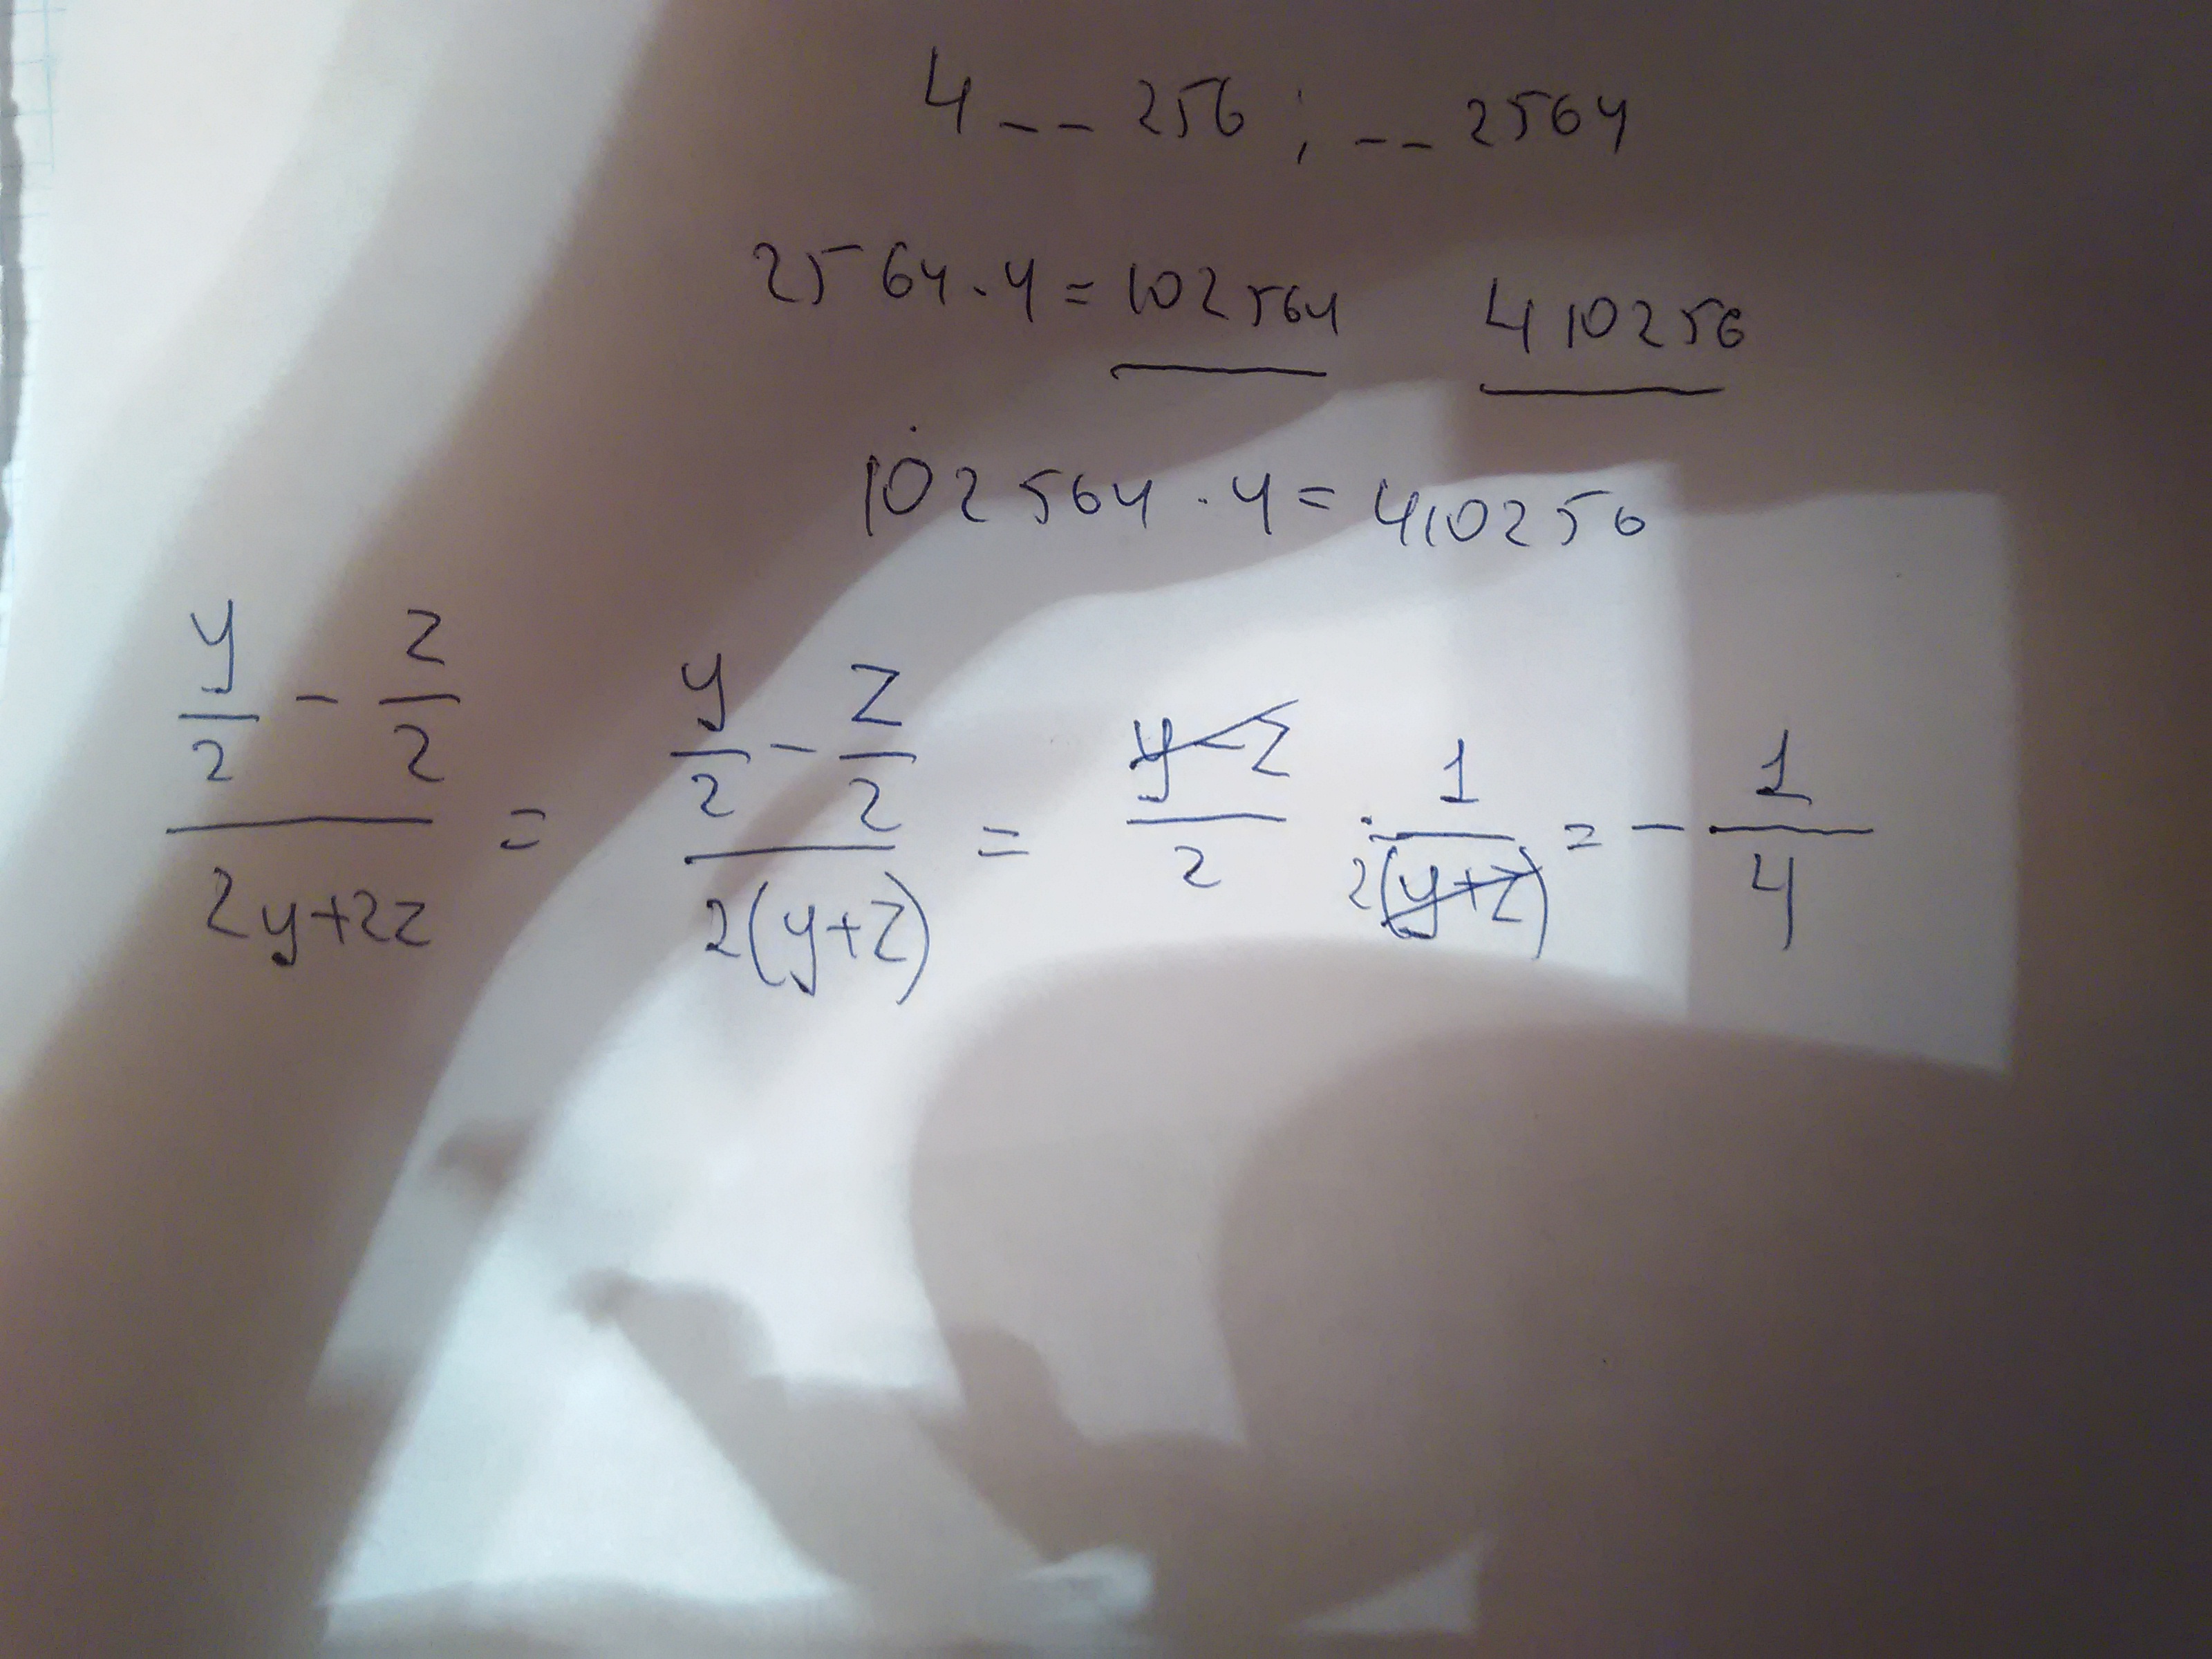 4 _ _ 256 ; _ _ 2564
2564 · 4 = 102564 410256
102564 · 4 = 410256
y/2 - z/2 / 2y+2z = y/2 - z/2 / 2(y+z) = y-z/2 · 1/2(y+z) = - 1/4